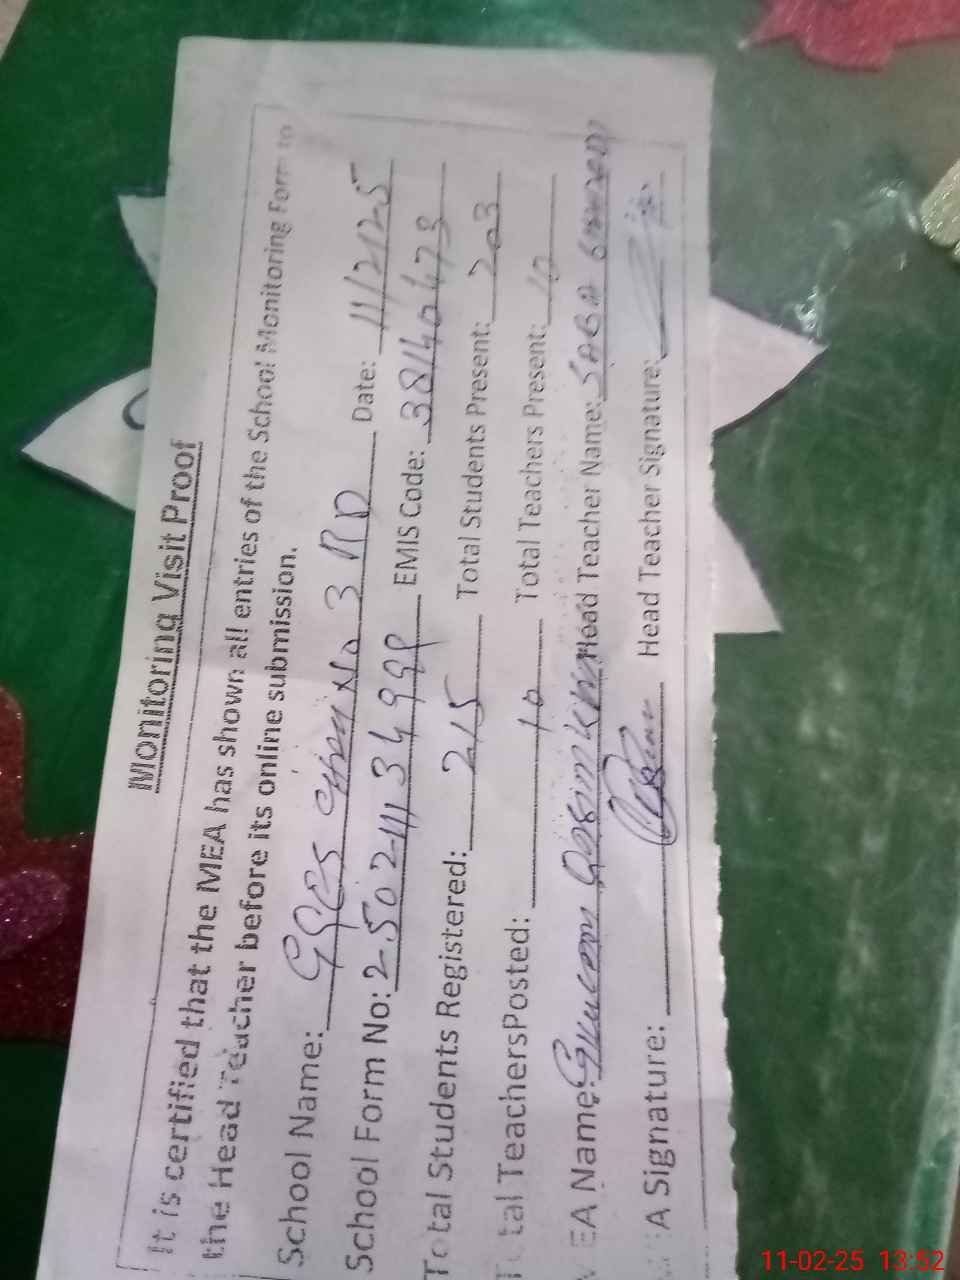 Monitoring Visit Proof
It is certified that the MEA has shown all entries of the School Monitoring Form to
the Head Teacher before its online submission.
School Name: No 3 RD Date: 11/2/25
School Form No: EMIS Code: 38140473
Total Students Registered: 215 Total Students Present: 203
Total TeachersPosted: 10 Total Teachers Present: 10
EA Name: Head Teacher Name: SABA
A Signature: Head Teacher Signature:
11-02-25 13:52